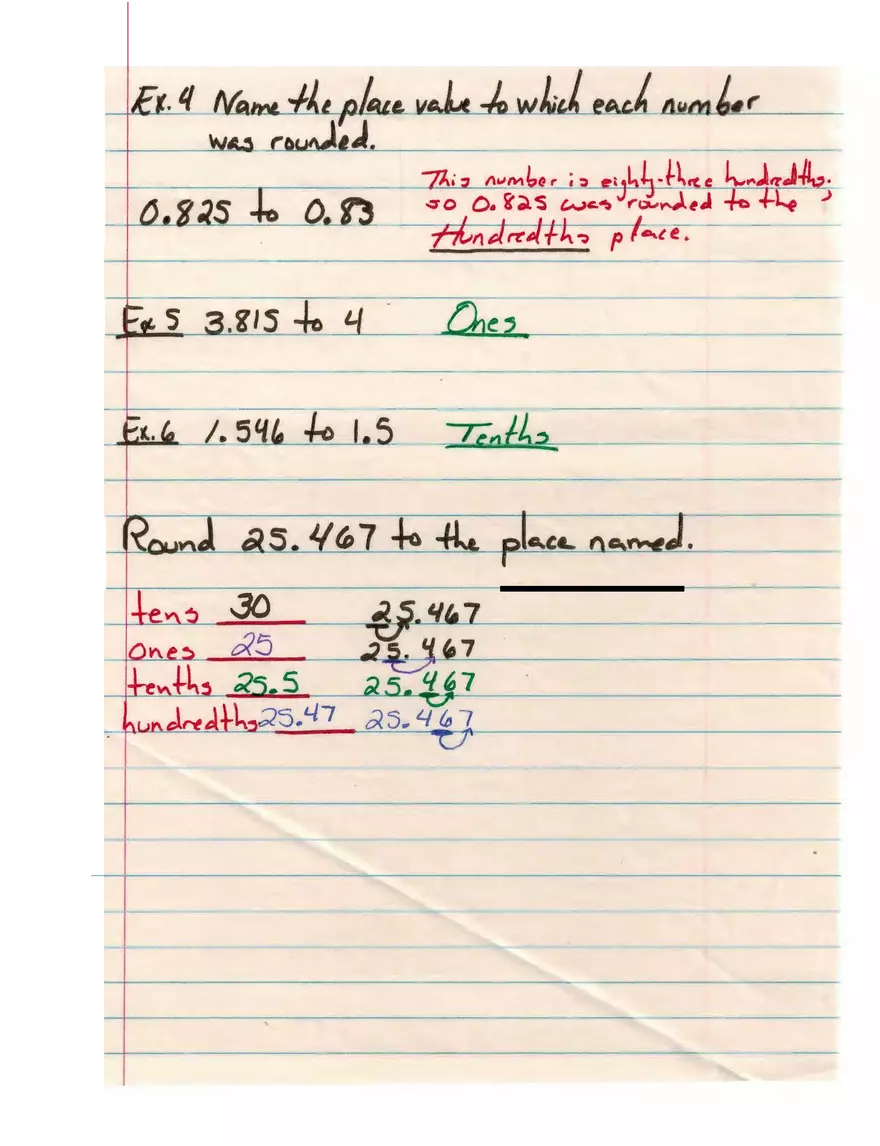 Ex. 4 Name the place value to which each number
was rounded.
This number is eighty-three hundredths,
0.825 to 0.83 so 0.825 was rounded to the
Hundredths place.
Ex 5 3.815 to 4 Ones
Ex. 6 1.546 to 1.5 Tenths
Round 25.467 to the place named.
tens 30 25.467
ones 25 25.467
tenths 25.5 25.467
hundredths 25.47 25.467